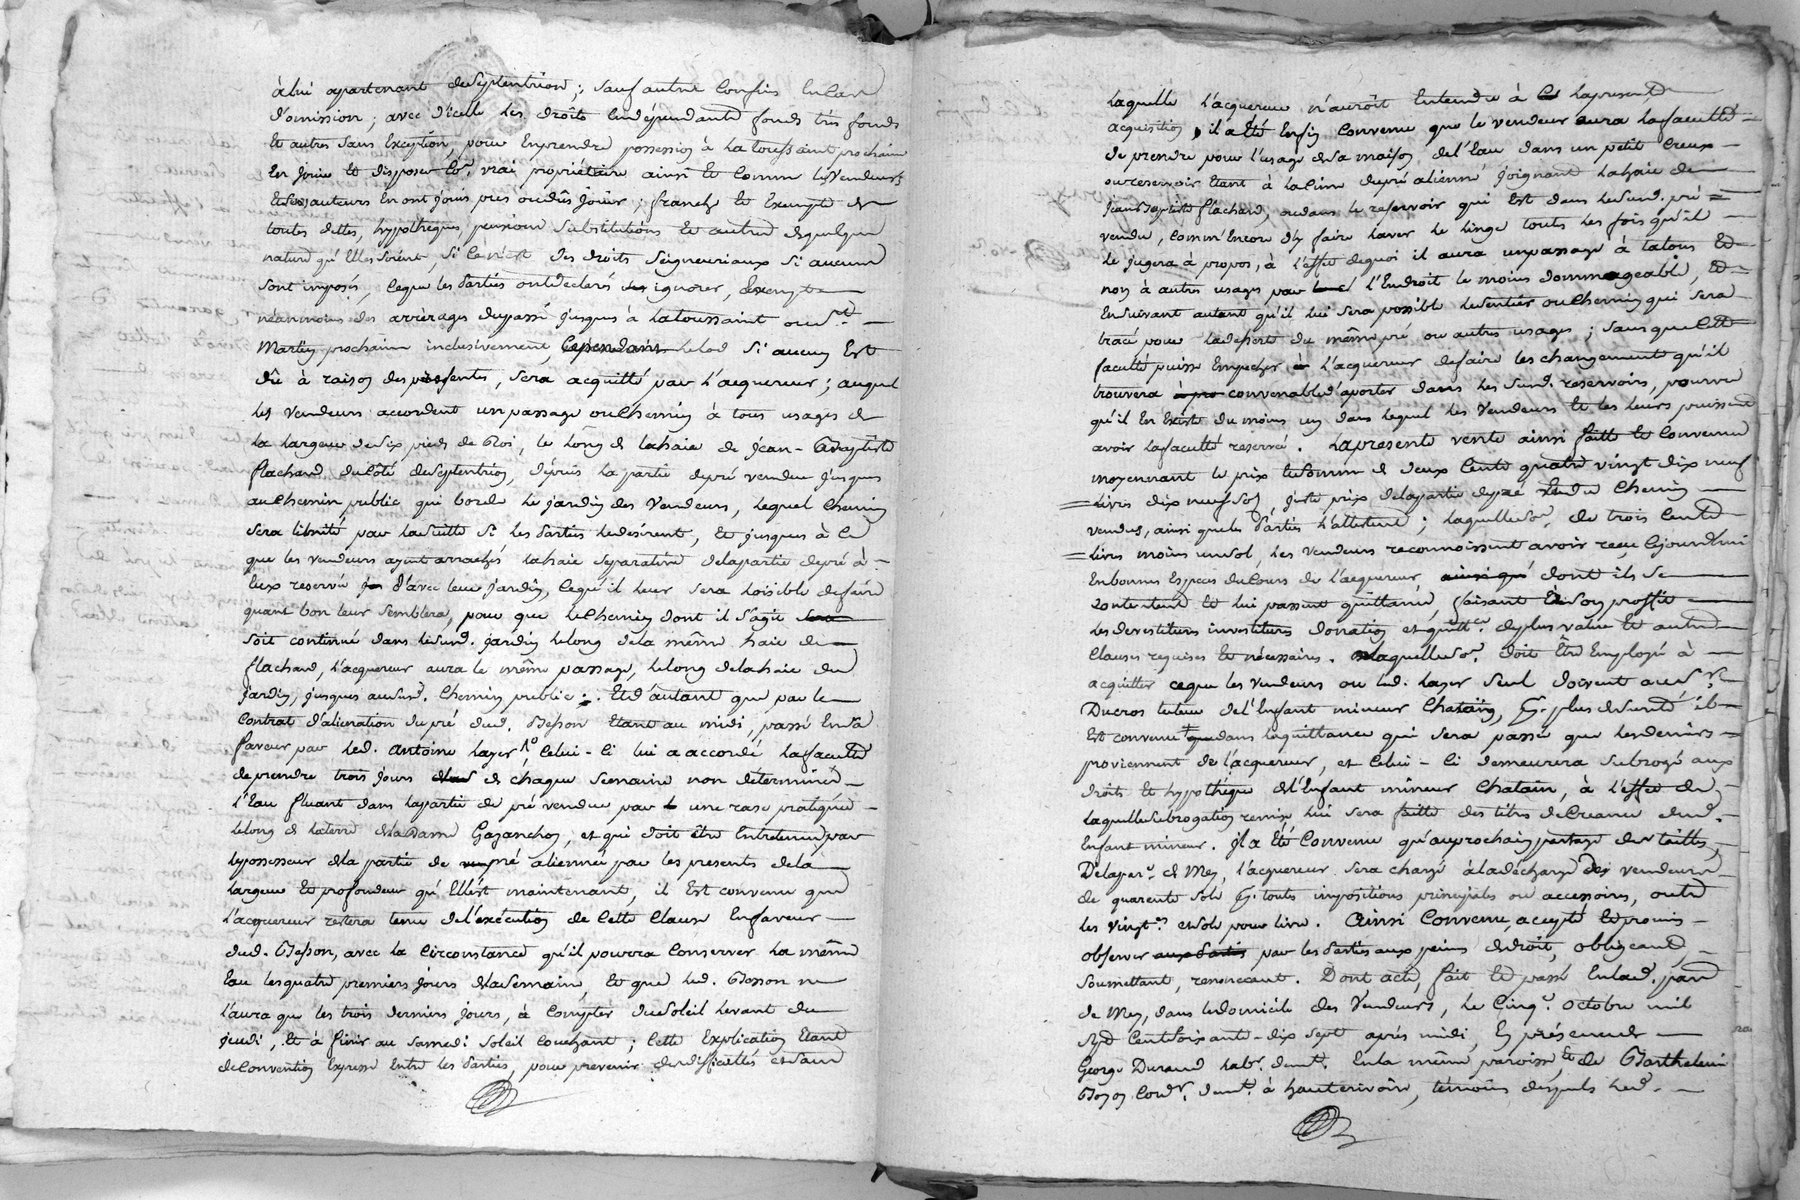 à lui appartenant de Septentrion; sauf autres confins en cas
d'omission; avec d'icelle les droits dépendants fonds très fonds
Et autres sans Exception, pour En prendre possession à la toussaint prochaine
En jouir Et disposer En vrai propriétaire ainsi Et comme les Vendeurs
Et ses auteurs En ont joui peu ou dû jouir; franche Et Exempte de
toutes dettes, hypothèques, pensions Substitutions Et autres de quelque
nature qu'Elles soient, Si ce n'est des droits Seigneuriaux si aucuns
sont imposés, ce que les Parties ont déclaré ignorer, Exempte
néanmoins des arrérages du passé jusques à la toussaint ou St.
Martin prochaine inclusivement, Cependant le lod Si aucun Est
dû à raison des présentes, sera acquitté par l'acquereur; auquel
les Vendeurs accordent un passage ou Chemin à tous usages de
la largeur de six pieds de Roi, le long de la haie de Jean-Baptiste
flachard du côté de Septentrion, dépuis la partie de pré vendue jusques
au Chemin public qui borde le jardin des Vendeurs, lequel Chemin
sera limité par la suitte Si les Parties le désirent, Et jusques à ce
que les vendeurs ayent arrachés la haie séparative de la partie de pré à
Eux reservée d'avec leur jardin, ce qu'il leur sera loisible de faire
quant bon leur semblera, pour que le Chemin dont il s'agit
soit continué dans led. jardin le long de la même haie de
flachard, l'acquereur aura le même passage, le long de la haie du
jardin, jusques aud. Chemin public; Et d'autant que par le
Contrat d'alienation du pré dud. Besson Etant au midi, passé En sa
faveur par led. Antoine layer, Celui-Ci lui a accordé la faculté
de prendre trois jours de chaque Semaine non déterminés
l'Eau fluant dans la partie de pré vendue par une rase pratiquée
le long de la terre de la Dame Gazanchon, et qui doit être Entretenue par
le possesseur de la partie de pré alienné par les presents de la
largeur Et profondeur qu'Elle est maintenant, il Est convenu que
l'acquereur restera tenu de l'exécution de Cette Clause En faveur
dud. Besson, avec la circonstance qu'il pourra Conserver la même
Eau les quatre premiers jours de la Semaine, Et que led. Besson ne
l'aura que les trois derniers jours, à compter du Soleil levant du
jeudi, Et à finir au Samedi Soleil Couchant; Cette Explication Etant
de Convention Expresse Entre les Parties, pour prevenir des difficultés et sans
laquelle l'acquereur n'auroit Entendre à la presente
acquisition, il a Eté Enfin convenu que le vendeur aura la faculté
de prendre pour l'usage de sa maison de l'Eau dans un petit Creux
ou reservoir Etant à la Cime du pré alienné joignant la haie de
Jean Baptiste flachard, ou dans le reservoir qui Est dans led. pré
vendu, comm'Encore d'y faire laver le linge toutes les fois qu'il
le jugera à propos, à l'effet de quoi il aura un passage à talons Et
non à autres usages par l'Endroit le moins dommageable, Et
En suivant autant qu'il lui Sera possible le Sentier ou Chemin qui sera
tracé pour la desserte du même pré ou autres usages; Sans que Cette
faculté puisse Empêcher l'acquereur de faire les changements qu'il
trouvera convenable d'aporter dans les Susd. reservoirs, pourvu
qu'il En Existe du moins un dans lequel les Vendeurs Et les leurs puissent
avoir la faculté reservée. La presente vente ainsi faitte Et Convenue
moyennant le prix Et somme de deux Cents quatre vingt dix neuf
livres dix neuf sols juste prix de la partie de pré Et du Chemin
vendus, ainsi que les Parties l'attestent; laquelle se. de trois Cents
livres moins un sol, les Vendeurs reconnoissent avoir reçu Cejourd'hui
En bonnes Espèces du Cours de l'acquereur, dont ils se
Contentent Et lui passent quittance, faisant à son proffit
les devestitures investitures donation et quitt.ce de plus value Et autres
Clauses requises Et nécessaires. laquelle se. doit Etre Employé à
acquitter ce que les Vendeurs ou led. Layer Seul doivent au Sr.
Ducros tuteur de l'Enfant mineur Chatain, Et plus de sureté il
Est convenu que dans la quittance qui sera passée que les deniers
proviennent de l'acquereur, et Celui-Ci demeurera Subrogé aux
droits Et hypothèque de l'Enfant mineur Chatain, à l'effet de
laquelle Subrogation remise lui sera faitte des titres de Creance dud.
Enfant mineur. Il a Eté Convenu qu'au prochain partage des tailles
De la par. de Mey, l'acquereur Sera chargé à la décharge des vendeurs
de quarente sols Et toutes impositions principales ou accessoires, outre
les vingt.es et sols pour livre. Ainsi Convenu, accepté Et promis
observer par les Parties aux peines de droit, obligeant,
Soumettant, renonceant. Dont acte, fait Et passé En lad. par.
de Mey, dans le domicile des Vendeurs, le Cinq. octobre mil
sept Cent soixante-dix Sept après midi, En présence de
George Durand lab. demt. En la même paroisse, Et de Barthelemi
Boyon Cord. demt. à hauterivoire, témoins desquels led.